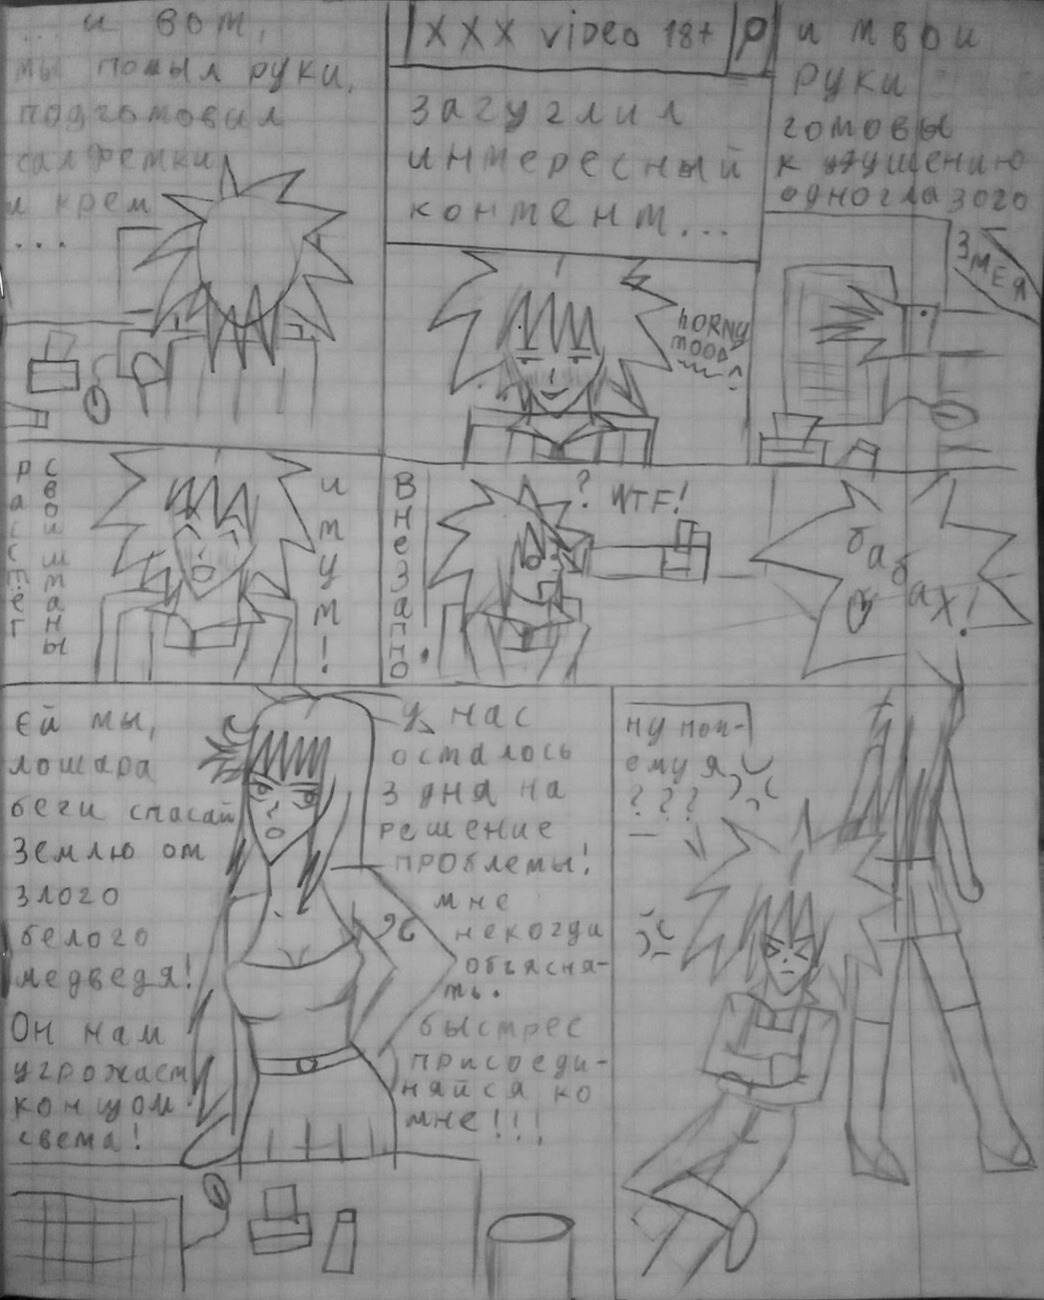 ... и вот,
ты помыл руки,
подготовил
салфетки
и крем
...
XXX video 18+
загуглил
интересный
контент...
и твои
руки
готовы
к удушению
одноглазого
змея
HORNY
MOOD
свои штаны
И тут!
Внезапно
? WTF!
бабах!
ей ты,
лошара
беги спасай
Землю от
злого
белого
медведя!
Он нам
угрожает
концом
света!
у нас
осталось
3 дня на
решение
проблемы!
мне
некогда
объясня-
ть.
быстрее
присоеди-
няйся ко
мне!!!
ну поч-
ему я
???